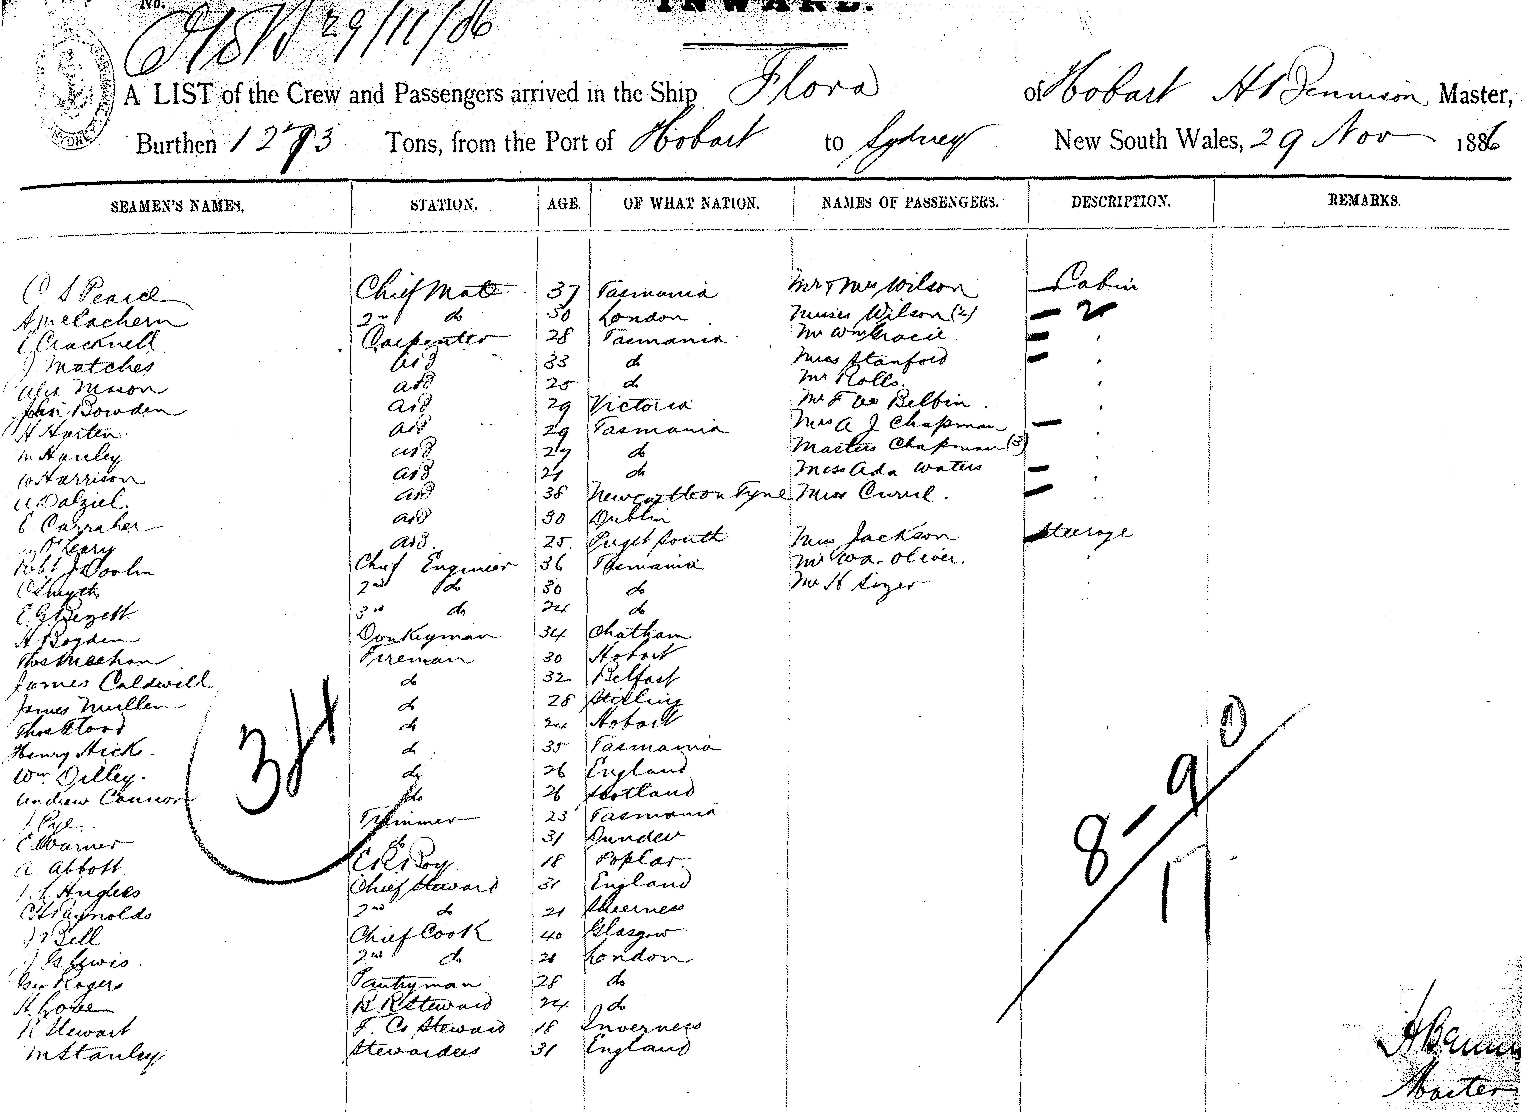 No.
INWARD.
29/11/86
A LIST of the Crew and Passengers arrived in the Ship Flora of Hobart H Bennison Master,
Burthen 1273 Tons, from the Port of Hobart to Sydney New South Wales, 29 Nov 1886
SEAMEN'S NAMES. STATION. AGE. OF WHAT NATION. NAMES OF PASSENGERS. DESCRIPTION. REMARKS.
C S Pearce Chief Mate 37 Tasmania Mr & Mrs Wilson Cabin
A McEachern 2nd do 30 London Misses Wilson (2) 2
E Cracknell Carpenter 28 Tasmania Mr Wm Gracie
J Matches AB 33 do Miss Stanford
Alex Mason AB 25 do Mr Rolls
John Bowden AB 29 Victoria Mr F Belbin
H Harten AB 29 Tasmania Mrs A J Chapman
M Hanley AB 27 do Masters Chapman (3)
W Harrison AB 21 do Miss Ada Waters
A Dalziel AB 38 Newcastle on Tyne Miss Curril
E Carraher AB 30 Dublin
O'Leary AB 25 Puget South Miss Jackson Steerage
Robt J Chief Engineer 36 Tasmania Mr Wm Oliver
C Smyth 2nd do 30 do Mr H Sizer
E G Bezett 3rd do 24 do
H Bogden Donkeyman 34 Chatham
Thos Meehan Fireman 30 Hobart
James Caldwell do 32 Belfast
James Mullen do 28 Stirling
Thos Flood do 24 Hobart
Henry Hick do 35 Tasmania
Wm Dilley do 26 England
Andrew Connor do 26 Scotland
J Pye Trimmer 23 Tasmania
E Warner do 31 Dundee
A Abbott ER Boy 18 Poplar
Hughes Chief Steward 31 England
C H Raynolds 2nd do 21 Sheerness
J Bell Chief Cook 40 Glasgow
J G Lewis 2nd do 21 London
Geo Rogers Pantryman 28 do
H Love B R Steward 24 do
R Stewart F. C. Steward 18 Inverness
M Stanley Stewardess 31 England
34
8-9 0
17
H Bennis
Master